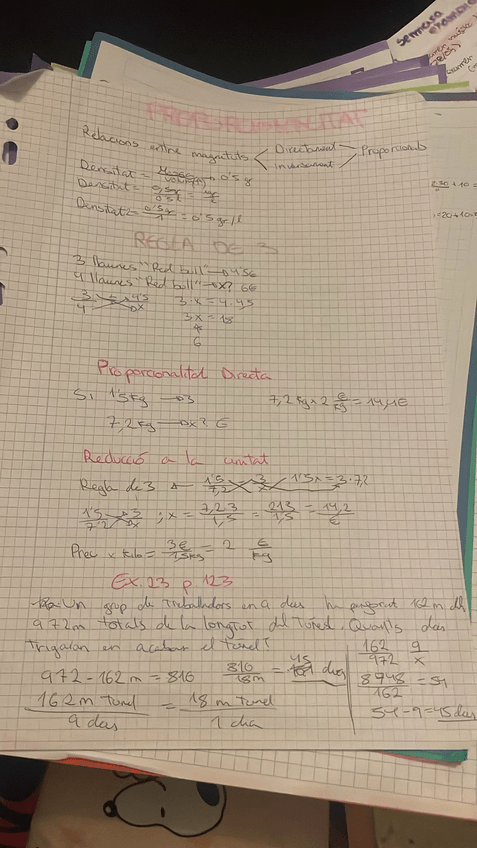 PROPORCIONALITAT
Relacions entre magnituts < Directament Inversament > Proporcionals
Densitat = → 0'5 g
Densitat =
Densitat = = 0'5 gr/l
REGLA DE 3
3 llaunes "Red bull" → 4'5€
4 llaunes "Red bull" → x? 6€
3/4 4'5/x 3·x = 4·4,5
3x = 18
6
Proporcionalitat Directa
Si 1'5 kg → 3
7,2 kg × 2 €/kg = 14,4€
7,2 kg → x? €
Reducció a la unitat
Regla de 3 1'5/7,2 = 3/x 1'5x = 3·7,2
1'5/7'2 3/x ; x = 7,2·3/1,5 = 213/1,5 = 14,2/€
Preu x kilo = 3€/1,5kg = 2 €/kg
Ex. 23 p 123
Un grup de treballadors en 9 dies ha perforat 162 m dels
972m totals de la longitud del Tunel. Quants dies
Trigaran en acabar el tunel?
972 - 162 m = 810 810/18m = 45 dies
162 m Tunel/9 dies = 18 m Tunel/1 dia
162/972 9/x
8748/162 = 54
54 - 9 = 45 dies
Setmana